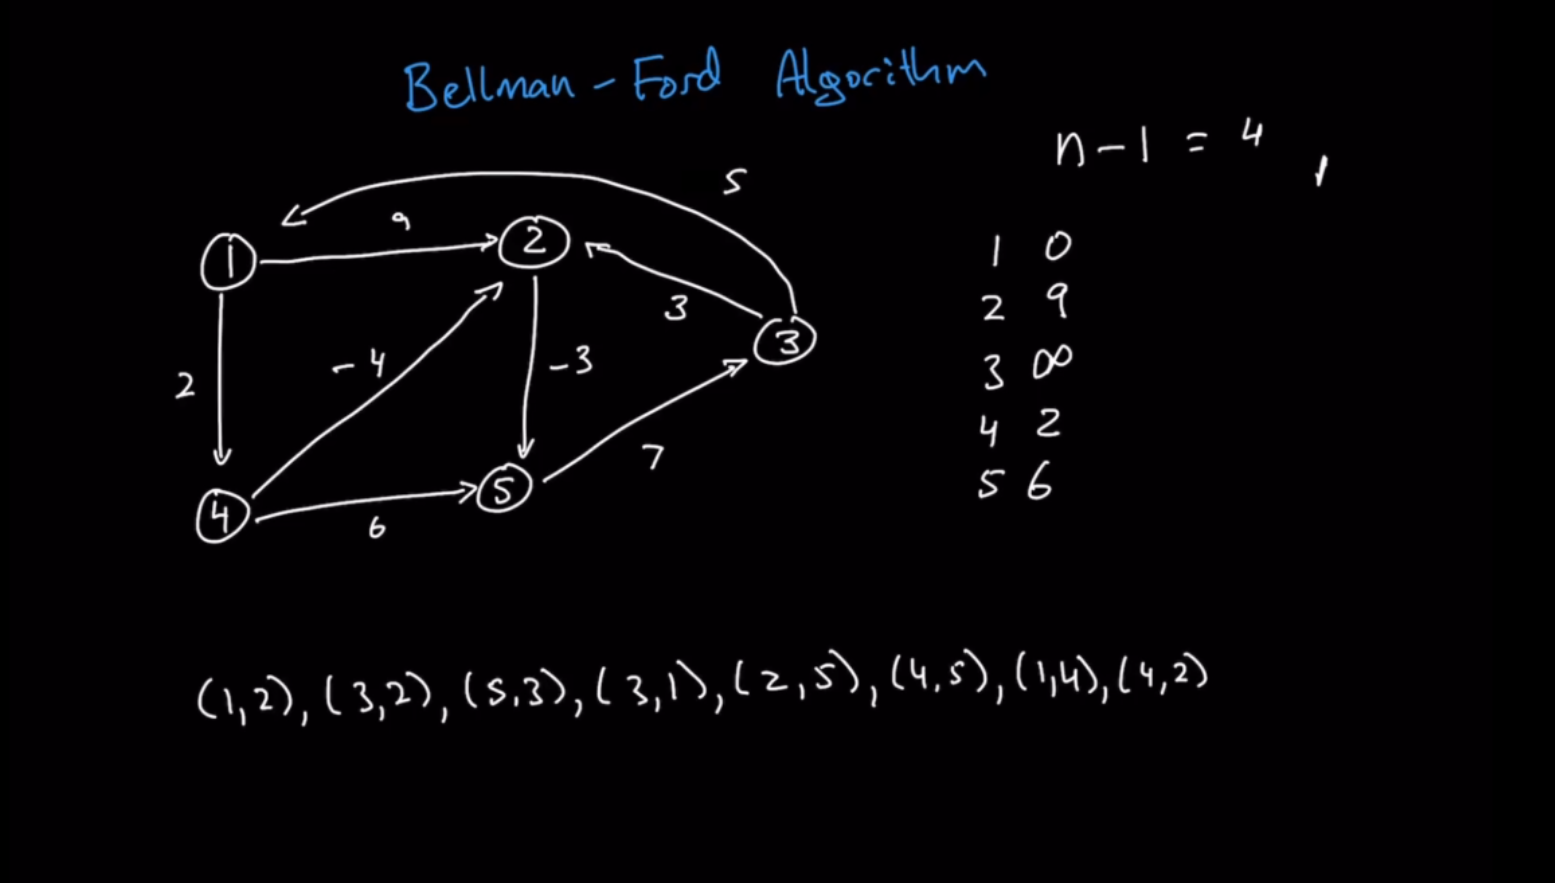 Bellman - Ford Algorithm
n - 1 = 4
5
9
1
2
3
3
2
-4
-3
4
5
6
7
1 0
2 9
3 ∞
4 2
5 6
(1,2), (3,2), (5,3), (3,1), (2,5), (4,5), (1,4), (4,2)